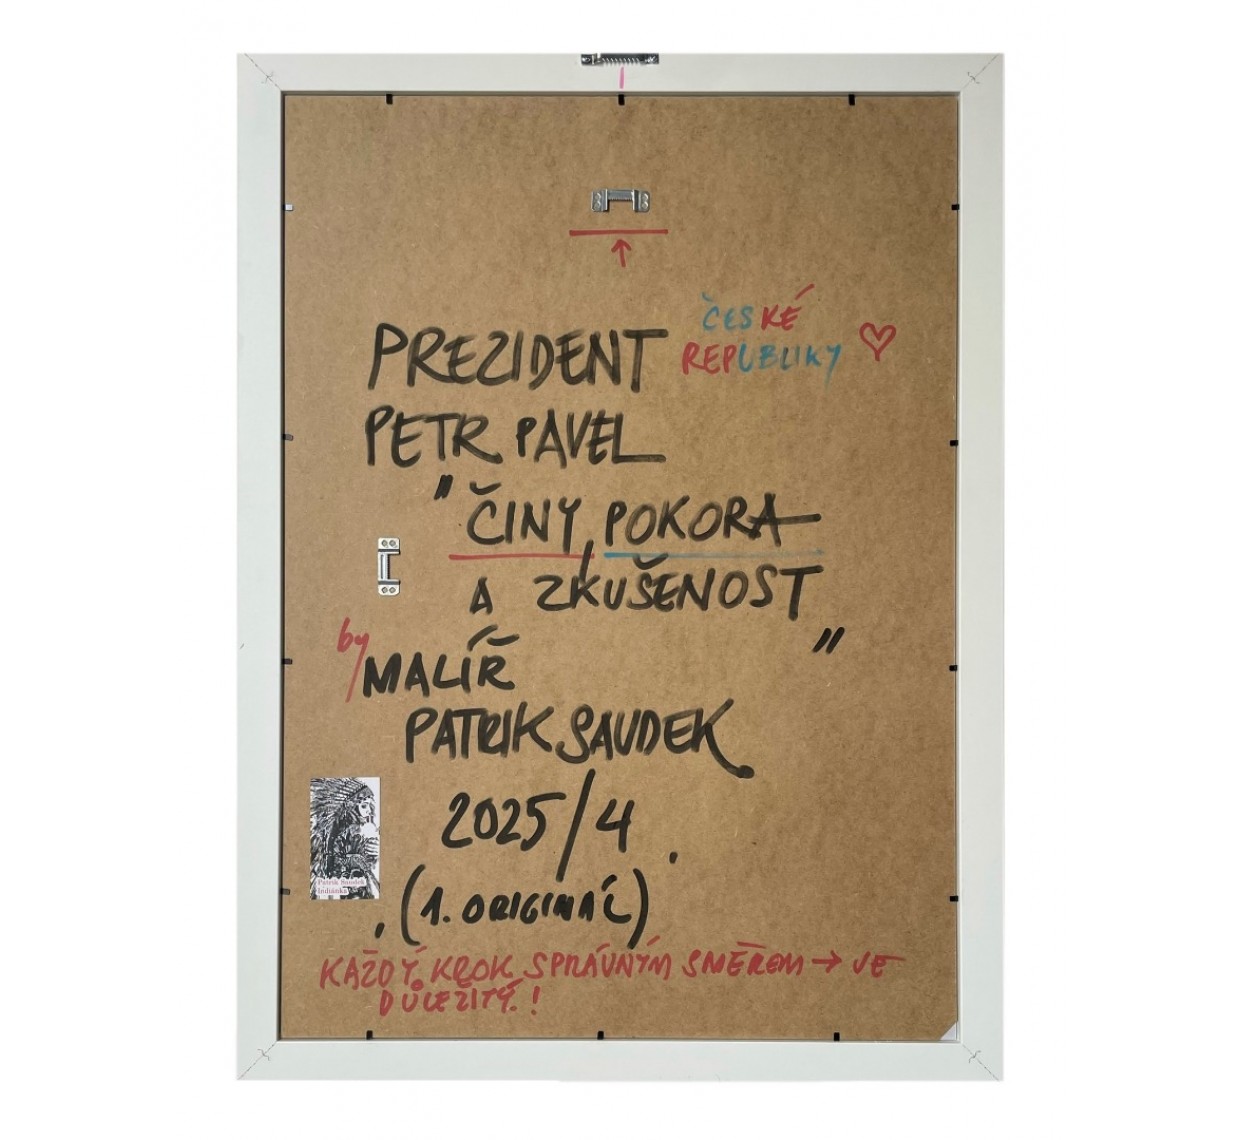 ČESKÉ
PREZIDENT REPUBLIKY
PETR PAVEL
" ČINY, POKORA
A ZKUŠENOST "
by MALÍŘ
PATRIK SAUDEK.
2025/4.
(1. ORIGINÁL)
KAŽDÝ KROK SPRÁVNÝM SMĚREM → JE
DŮLEŽITÝ!
Patrik Saudek
Indiánka